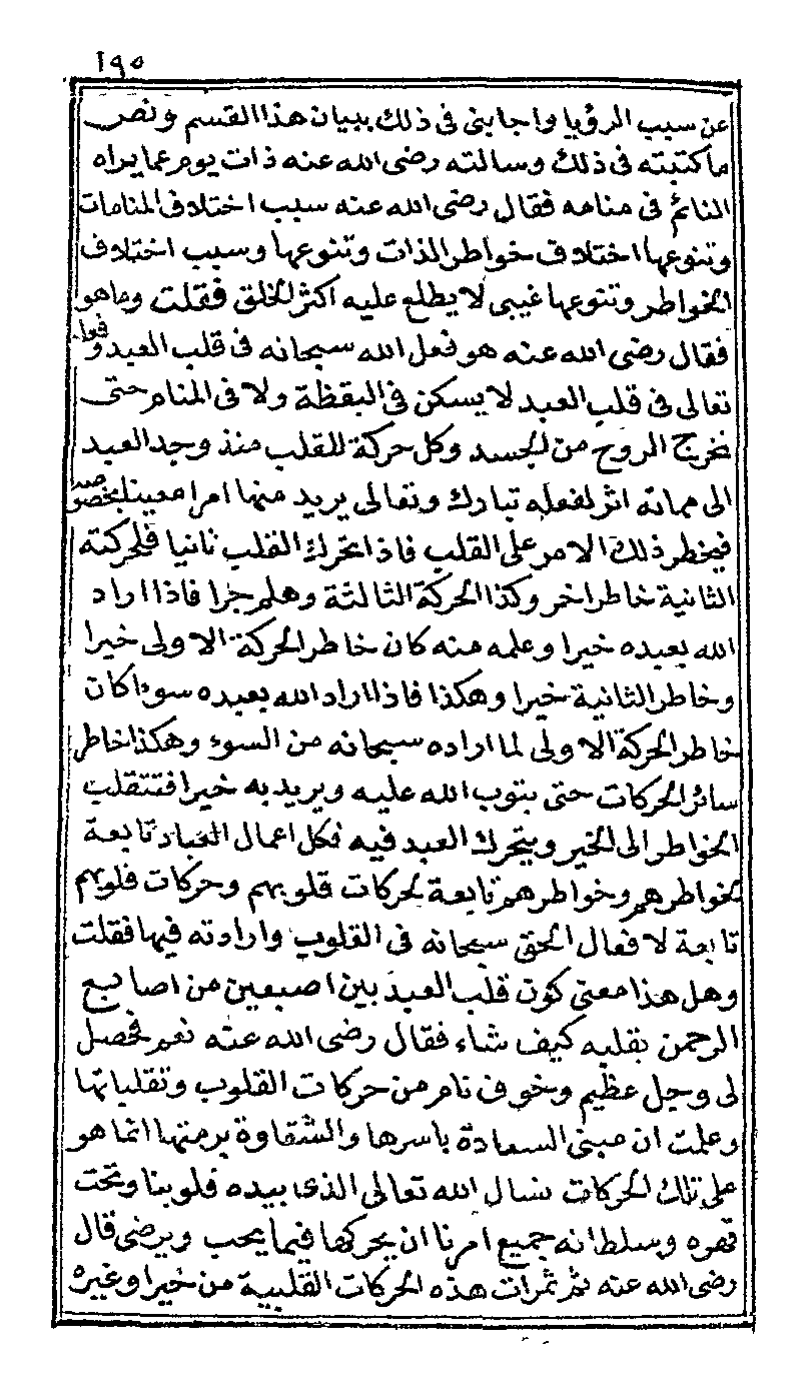 ١٩٥
عن سبب الرؤيا واجابنى فى ذلك ببيان هذا القسم ونص
ما كتبته فى ذلك وسالته رضى الله عنه ذات يوم عما يراه
النائم فى منامه فقال رضى الله عنه سبب اختلاف المنامات
وتنوعها اختلاف خواطر الذات وتنوعها وسبب اختلاف
الخواطر وتنوعها غيبى لا يطلع عليه اكثر الخلق فقلت وما هو
فقال رضى الله عنه هو فعل الله سبحانه فى قلب العبد وفعله
تعالى فى قلب العبد لا يسكن فى اليقظة ولا فى المنام حتى
تخرج الروح من الجسد وكل حركة للقلب منذ وجد العبد
الى مماته اثر لفعله تبارك وتعالى يريد منها امرا معينا بخصوصه
فيخطر ذلك الامر على القلب فاذا تحرك القلب ثانيا فلحركته
الثانية خاطر اخر وكذا الحركة الثالثة وهلم جرا فاذا اراد
الله بعبده خيرا وعلمه منه كان خاطر الحركة الاولى خيرا
وخاطر الثانية خيرا وهكذا فاذا اراد الله بعبده سوءا كان
خاطر الحركة الاولى لما اراده سبحانه من السوء وهكذا خاطر
سائر الحركات حتى يتوب الله عليه ويريد به خيرا فتتقلب
الخواطر الى الخير ويتحرك العبد فيه فكل اعمال العباد تابعة
لخواطرهم وخواطرهم تابعة لحركات قلوبهم وحركات قلوبهم
تابعة لافعال الحق سبحانه فى القلوب وارادته فيها فقلت
وهل هذا معنى كون قلب العبد بين اصبعين من اصابع
الرحمن يقلبه كيف شاء فقال رضى الله عنه نعم فحصل
لى وجل عظيم وخوف تام من حركات القلوب وتقلباتها
وعلمت ان مبنى السعادة باسرها والشقاوة برمتها انما هو
على تلك الحركات نسال الله تعالى الذى بيده قلوبنا وتحت
قهره وسلطانه جميع امرنا ان يحركها فيما يحب ويرضى قال
رضى الله عنه ثم ثمرات هذه الحركات القلبية من خير او غيره